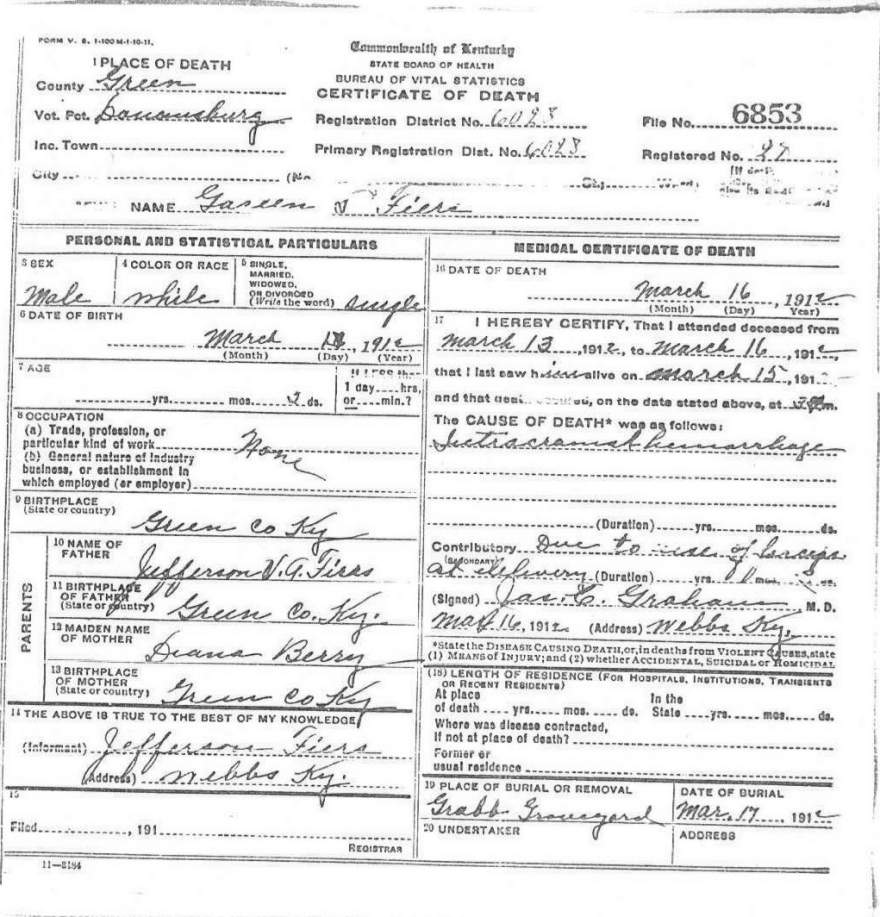 FORM V. S. 1-100M-1-10-11.
Commonwealth of Kentucky
STATE BOARD OF HEALTH
BUREAU OF VITAL STATISTICS
CERTIFICATE OF DEATH
1 PLACE OF DEATH
County Green
Vot. Pct.
Inc. Town
City (No
Registration District No. 6028
Primary Registration Dist. No. 6028
File No. 6853
Registered No. 27
NAME Gaseen V Fiers
PERSONAL AND STATISTICAL PARTICULARS
3 SEX
Male
4 COLOR OR RACE
white
5 SINGLE,
MARRIED,
WIDOWED,
OR DIVORCED
(Write the word) single
6 DATE OF BIRTH
March 1912
(Month) (Day) (Year)
7 AGE
yrs. mos. 2 ds.
If LESS than
1 day hrs.
or min.?
8 OCCUPATION
(a) Trade, profession, or
particular kind of work None
(b) General nature of industry
business, or establishment in
which employed (or employer)
9 BIRTHPLACE
(State or country)
Green Co Ky
PARENTS
10 NAME OF
FATHER
Jefferson V. A. Fiers
11 BIRTHPLACE
OF FATHER
(State or country) Green Co. Ky.
12 MAIDEN NAME
OF MOTHER
Diana Berry
13 BIRTHPLACE
OF MOTHER
(State or country) Green Co Ky
14 THE ABOVE IS TRUE TO THE BEST OF MY KNOWLEDGE
(Informant) Jefferson Fiers
(Address) Webbs Ky.
15
Filed , 191
REGISTRAR
11-3184
MEDICAL CERTIFICATE OF DEATH
16 DATE OF DEATH
March 16, 1912
(Month) (Day) (Year)
17 I HEREBY CERTIFY, That I attended deceased from
March 13, 1912, to March 16, 1912,
that I last saw him alive on March 15, 191
and that death occurred, on the date stated above, at m.
The CAUSE OF DEATH* was as follows:
Intracranial hemorrhage
(Duration) yrs. mos. ds.
Contributory Due to use of forceps
(SECONDARY)
at delivery (Duration) yrs. mos. ds.
(Signed) Jas. C. Graham M. D.
Mar 16, 1912 (Address) Webbs Ky.
*State the DISEASE CAUSING DEATH, or, in deaths from VIOLENT CAUSES, state
(1) MEANS OF INJURY; and (2) whether ACCIDENTAL, SUICIDAL or HOMICIDAL
(18) LENGTH OF RESIDENCE (FOR HOSPITALS, INSTITUTIONS, TRANSIENTS
OR RECENT RESIDENTS)
At place
of death yrs. mos. ds.
In the
State yrs. mos. ds.
Where was disease contracted,
If not at place of death?
Former or
usual residence
19 PLACE OF BURIAL OR REMOVAL
Grabb Graveyard
DATE OF BURIAL
Mar. 17, 1912
20 UNDERTAKER
ADDRESS